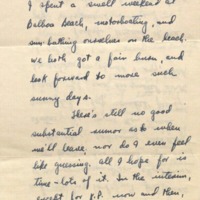 I spent a swell weekend at
Balboa Beach, motorboating, and
sun bathing ourselves on the beach.
We both got a fair burn, and
look forward to more such
sunny days.
There's still no good
substantial rumor as to when
we'll leave, nor do I even feel
like guessing. All I hope for is
time - lots of it. In the interim,
except for K.P. now and then,